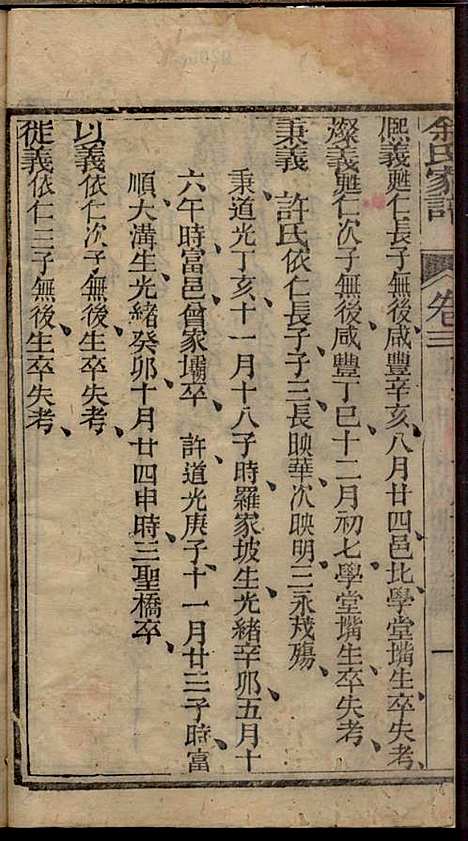 余氏家譜 卷三 一
熈義甦仁長子無後咸豐辛亥八月廿四邑北學堂嘴生卒失考
燦義甦仁次子無後咸豐丁巳十二月初七學堂嘴生卒失考
秉義 許氏依仁長子子三長映華次映明三永茂殤
秉道光丁亥十一月十八子時羅家坡生光緒辛卯五月十
六午時富邑曾家壩卒 許道光庚子十一月廿三子時富
順大溝生光緒癸卯十月廿四申時三聖橋卒
以義依仁次子無後生卒失考
從義依仁三子無後生卒失考